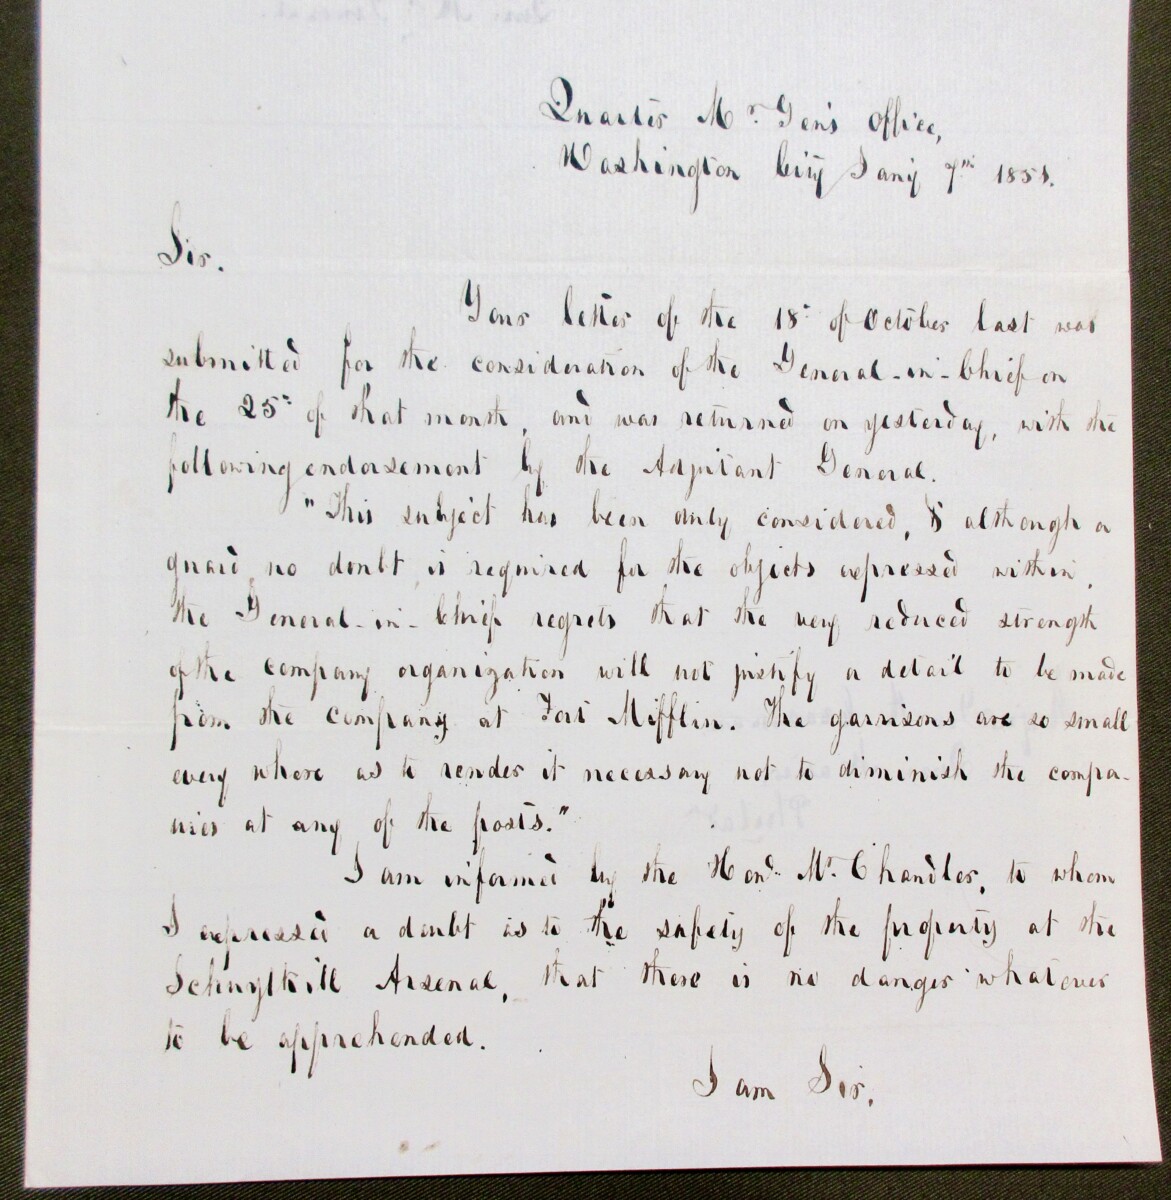 Quarter Mr. Gen's Office,
Washington City Jany 7th 1851.
Sir.
Your letter of the 18th of October last was
submitted for the consideration of the General-in-Chief on
the 25th of that month, and was returned on yesterday, with the
following endorsement by the Adjutant General.
"This subject has been duly considered, & although a
guard, no doubt, is required for the objects expressed within,
the General-in-Chief regrets that the very reduced strength
of the company organization will not justify a detail to be made
from the company at Fort Mifflin. The garrisons are so small
every where as to render it necessary not to diminish the compa-
nies at any of the posts."
I am informed by the Hond. Mr. Chandler, to whom
I expressed a doubt as to the safety of the property at the
Schuylkill Arsenal, that there is no danger whatever
to be apprehended.
I am Sir,